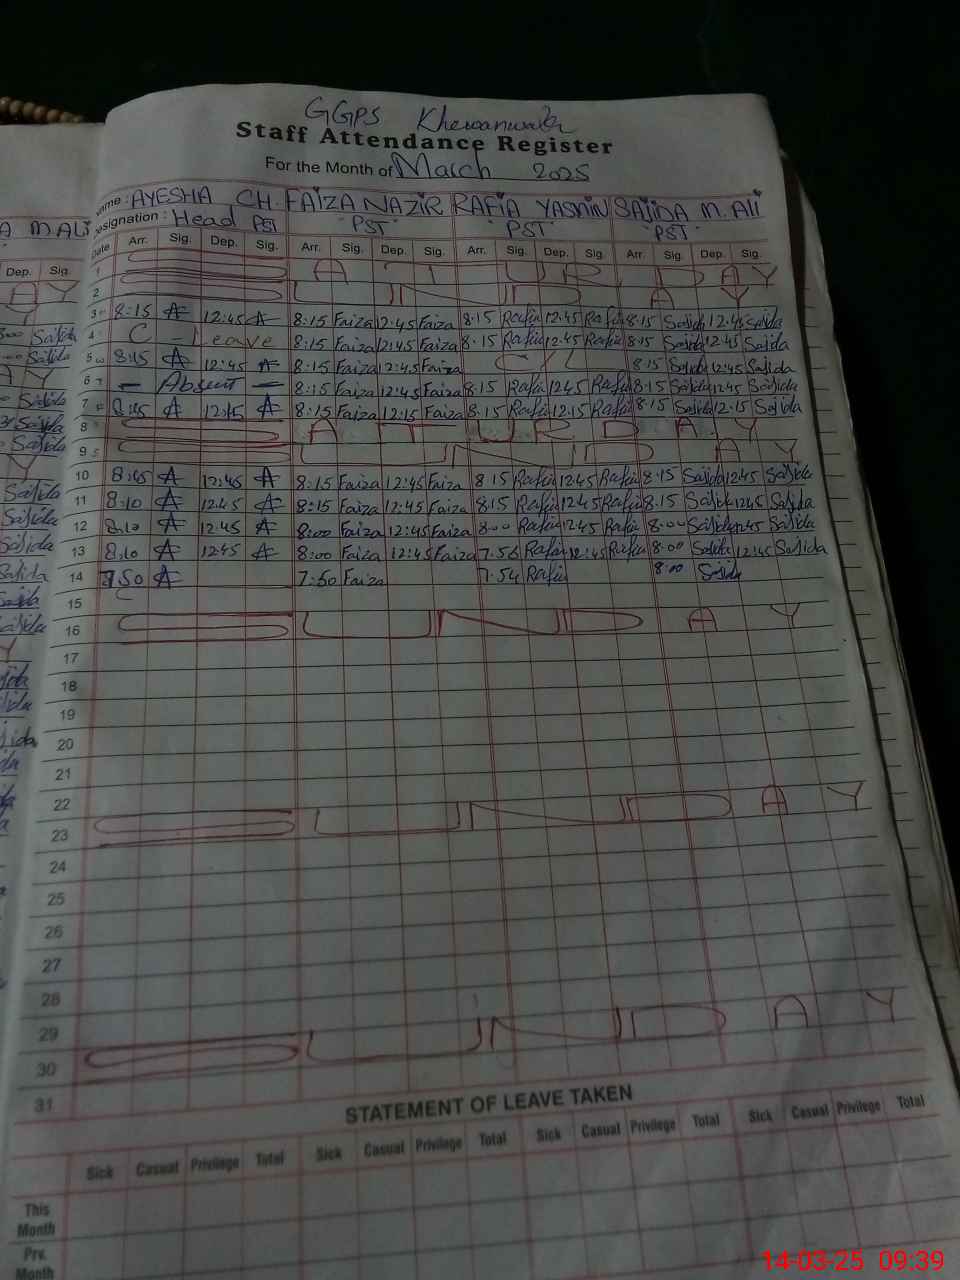 GGPS Khewanwala
Staff Attendance Register
For the Month of March 2025
Name : AYESHA CH. FAIZA NAZIR RAFIA YASMIN SAJIDA M. ALI
Designation : Head PST "PST" "PST" "PST"
Date Arr. Sig. Dep. Sig. Arr. Sig. Dep. Sig. Arr. Sig. Dep. Sig. Arr. Sig. Dep. Sig.
1 S A T U R D A Y
2 S U N D A Y
3 8:15 A 12:45 A 8:15 Faiza 12:45 Faiza 8:15 Rafia 12:45 Rafia 8:15 Sajida 12:45 Sajida
4 C - Leave 8:15 Faiza 12:45 Faiza 8:15 Rafia 12:45 Rafia 8:15 Sajida 12:45 Sajida
5 8:15 A 12:45 A 8:15 Faiza 12:45 Faiza C/L 8:15 Sajida 12:45 Sajida
6 - Absent - 8:15 Faiza 12:45 Faiza 8:15 Rafia 1245 Rafia 8:15 Sajida 1245 Sajida
7 8:15 A 12:15 A 8:15 Faiza 12:15 Faiza 8:15 Rafia 12:15 Rafia 8:15 Sajida 12:15 Sajida
8 S A T U R D A Y
9 S U N D A Y
10 A 12:45 A 8:15 Faiza 12:45 Faiza 8:15 Rafia 1245 Rafia 8:15 Sajida 1245 Sajida
11 8:10 A 12:45 A 8:15 Faiza 12:45 Faiza 8:15 Rafia 1245 Rafia 8:15 Sajida 1245 Sajida
12 8:10 A 12:45 A 8:00 Faiza 12:45 Faiza 8:00 Rafia 1245 Rafia 8:00 Sajida 1245 Sajida
13 8:10 A 12:45 A 8:00 Faiza 12:45 Faiza 7:56 Rafia 12:45 Rafia 8:00 Sajida 12:45 Sajida
14 7:50 A 7:50 Faiza 7:54 Rafia 8:00 Sajida
15
16 S U N D A Y
17
18
19
20
21
22
23 S U N D A Y
24
25
26
27
28
29
30 S U N D A Y
31
STATEMENT OF LEAVE TAKEN
Sick Casual Privilege Total Sick Casual Privilege Total Sick Casual Privilege Total Sick Casual Privilege Total
This Month
Prv. Month
14-03-25 09:39